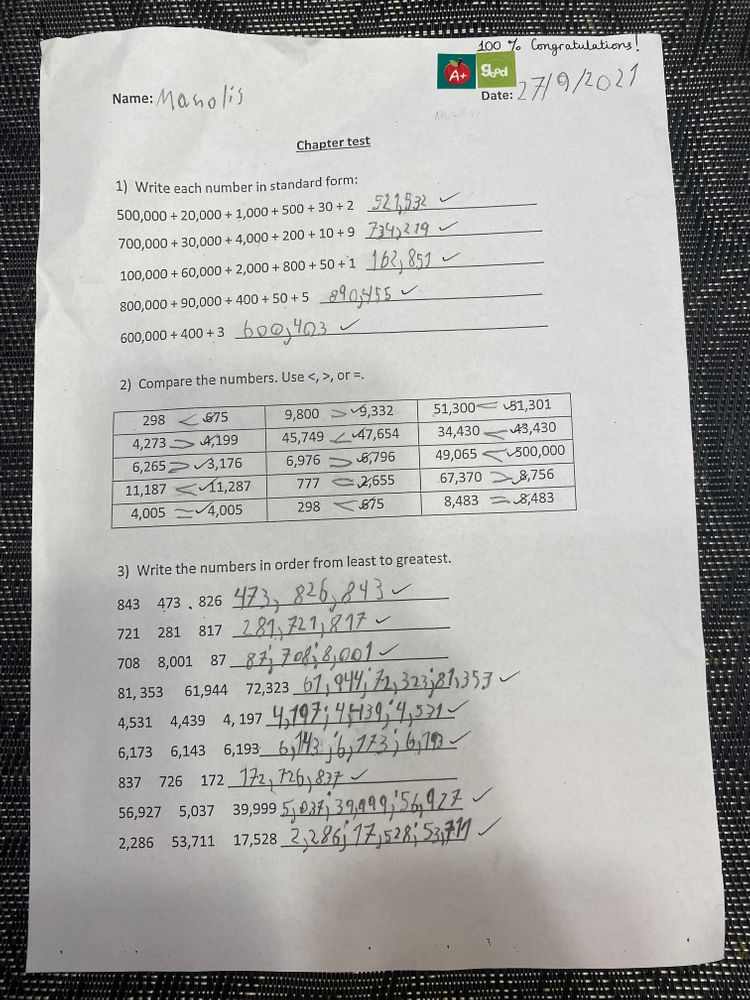 100 % Congratulations!
A+ good
Name: Manolis Date: 27/9/2021
Chapter test
1) Write each number in standard form:
500,000 + 20,000 + 1,000 + 500 + 30 + 2 521,532 ✓
700,000 + 30,000 + 4,000 + 200 + 10 + 9 734,219 ✓
100,000 + 60,000 + 2,000 + 800 + 50 + 1 162,851 ✓
800,000 + 90,000 + 400 + 50 + 5 890,455 ✓
600,000 + 400 + 3 600,403 ✓
2) Compare the numbers. Use <, >, or =.
298 < ✓675 9,800 > ✓9,332 51,300 < ✓51,301
4,273 > ✓4,199 45,749 < ✓47,654 34,430 < ✓43,430
6,265 > ✓3,176 6,976 > ✓6,796 49,065 < ✓500,000
11,187 < ✓11,287 777 < ✓2,655 67,370 > ✓8,756
4,005 = ✓4,005 298 < ✓675 8,483 = ✓8,483
3) Write the numbers in order from least to greatest.
843 473 . 826 473, 826, 843 ✓
721 281 817 281, 721, 817 ✓
708 8,001 87 87; 708; 8,001 ✓
81, 353 61,944 72,323 61,944; 72,323; 81,353 ✓
4,531 4,439 4, 197 4,197; 4,439; 4,531 ✓
6,173 6,143 6,193 6,143; 6,173; 6,193 ✓
837 726 172 172, 726, 837 ✓
56,927 5,037 39,999 5,037; 39,999; 56,927 ✓
2,286 53,711 17,528 2,286; 17,528; 53,711 ✓